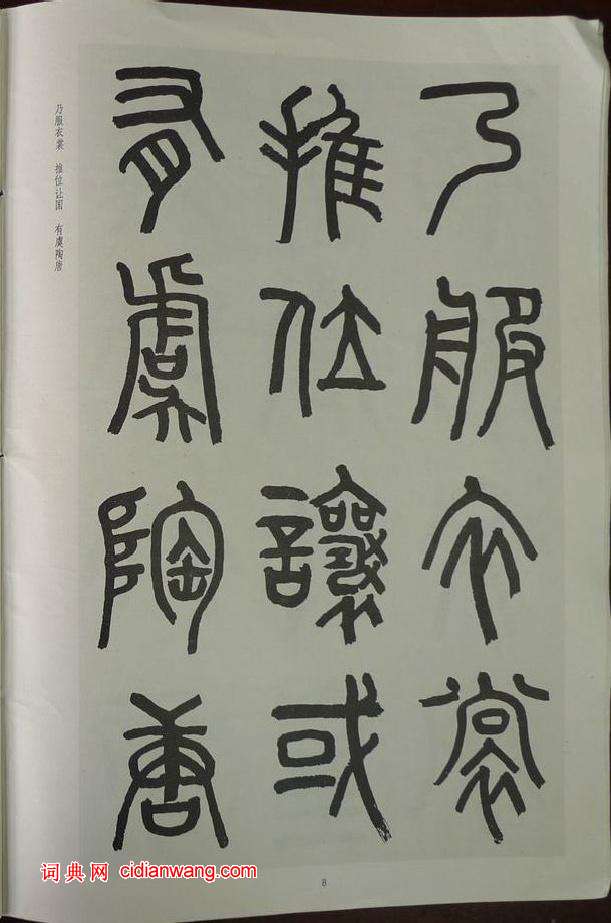 乃服衣裳
推位讓或
有虞陶唐
乃服衣裳 推位让国 有虞陶唐
8
词典网 cidianwang.com